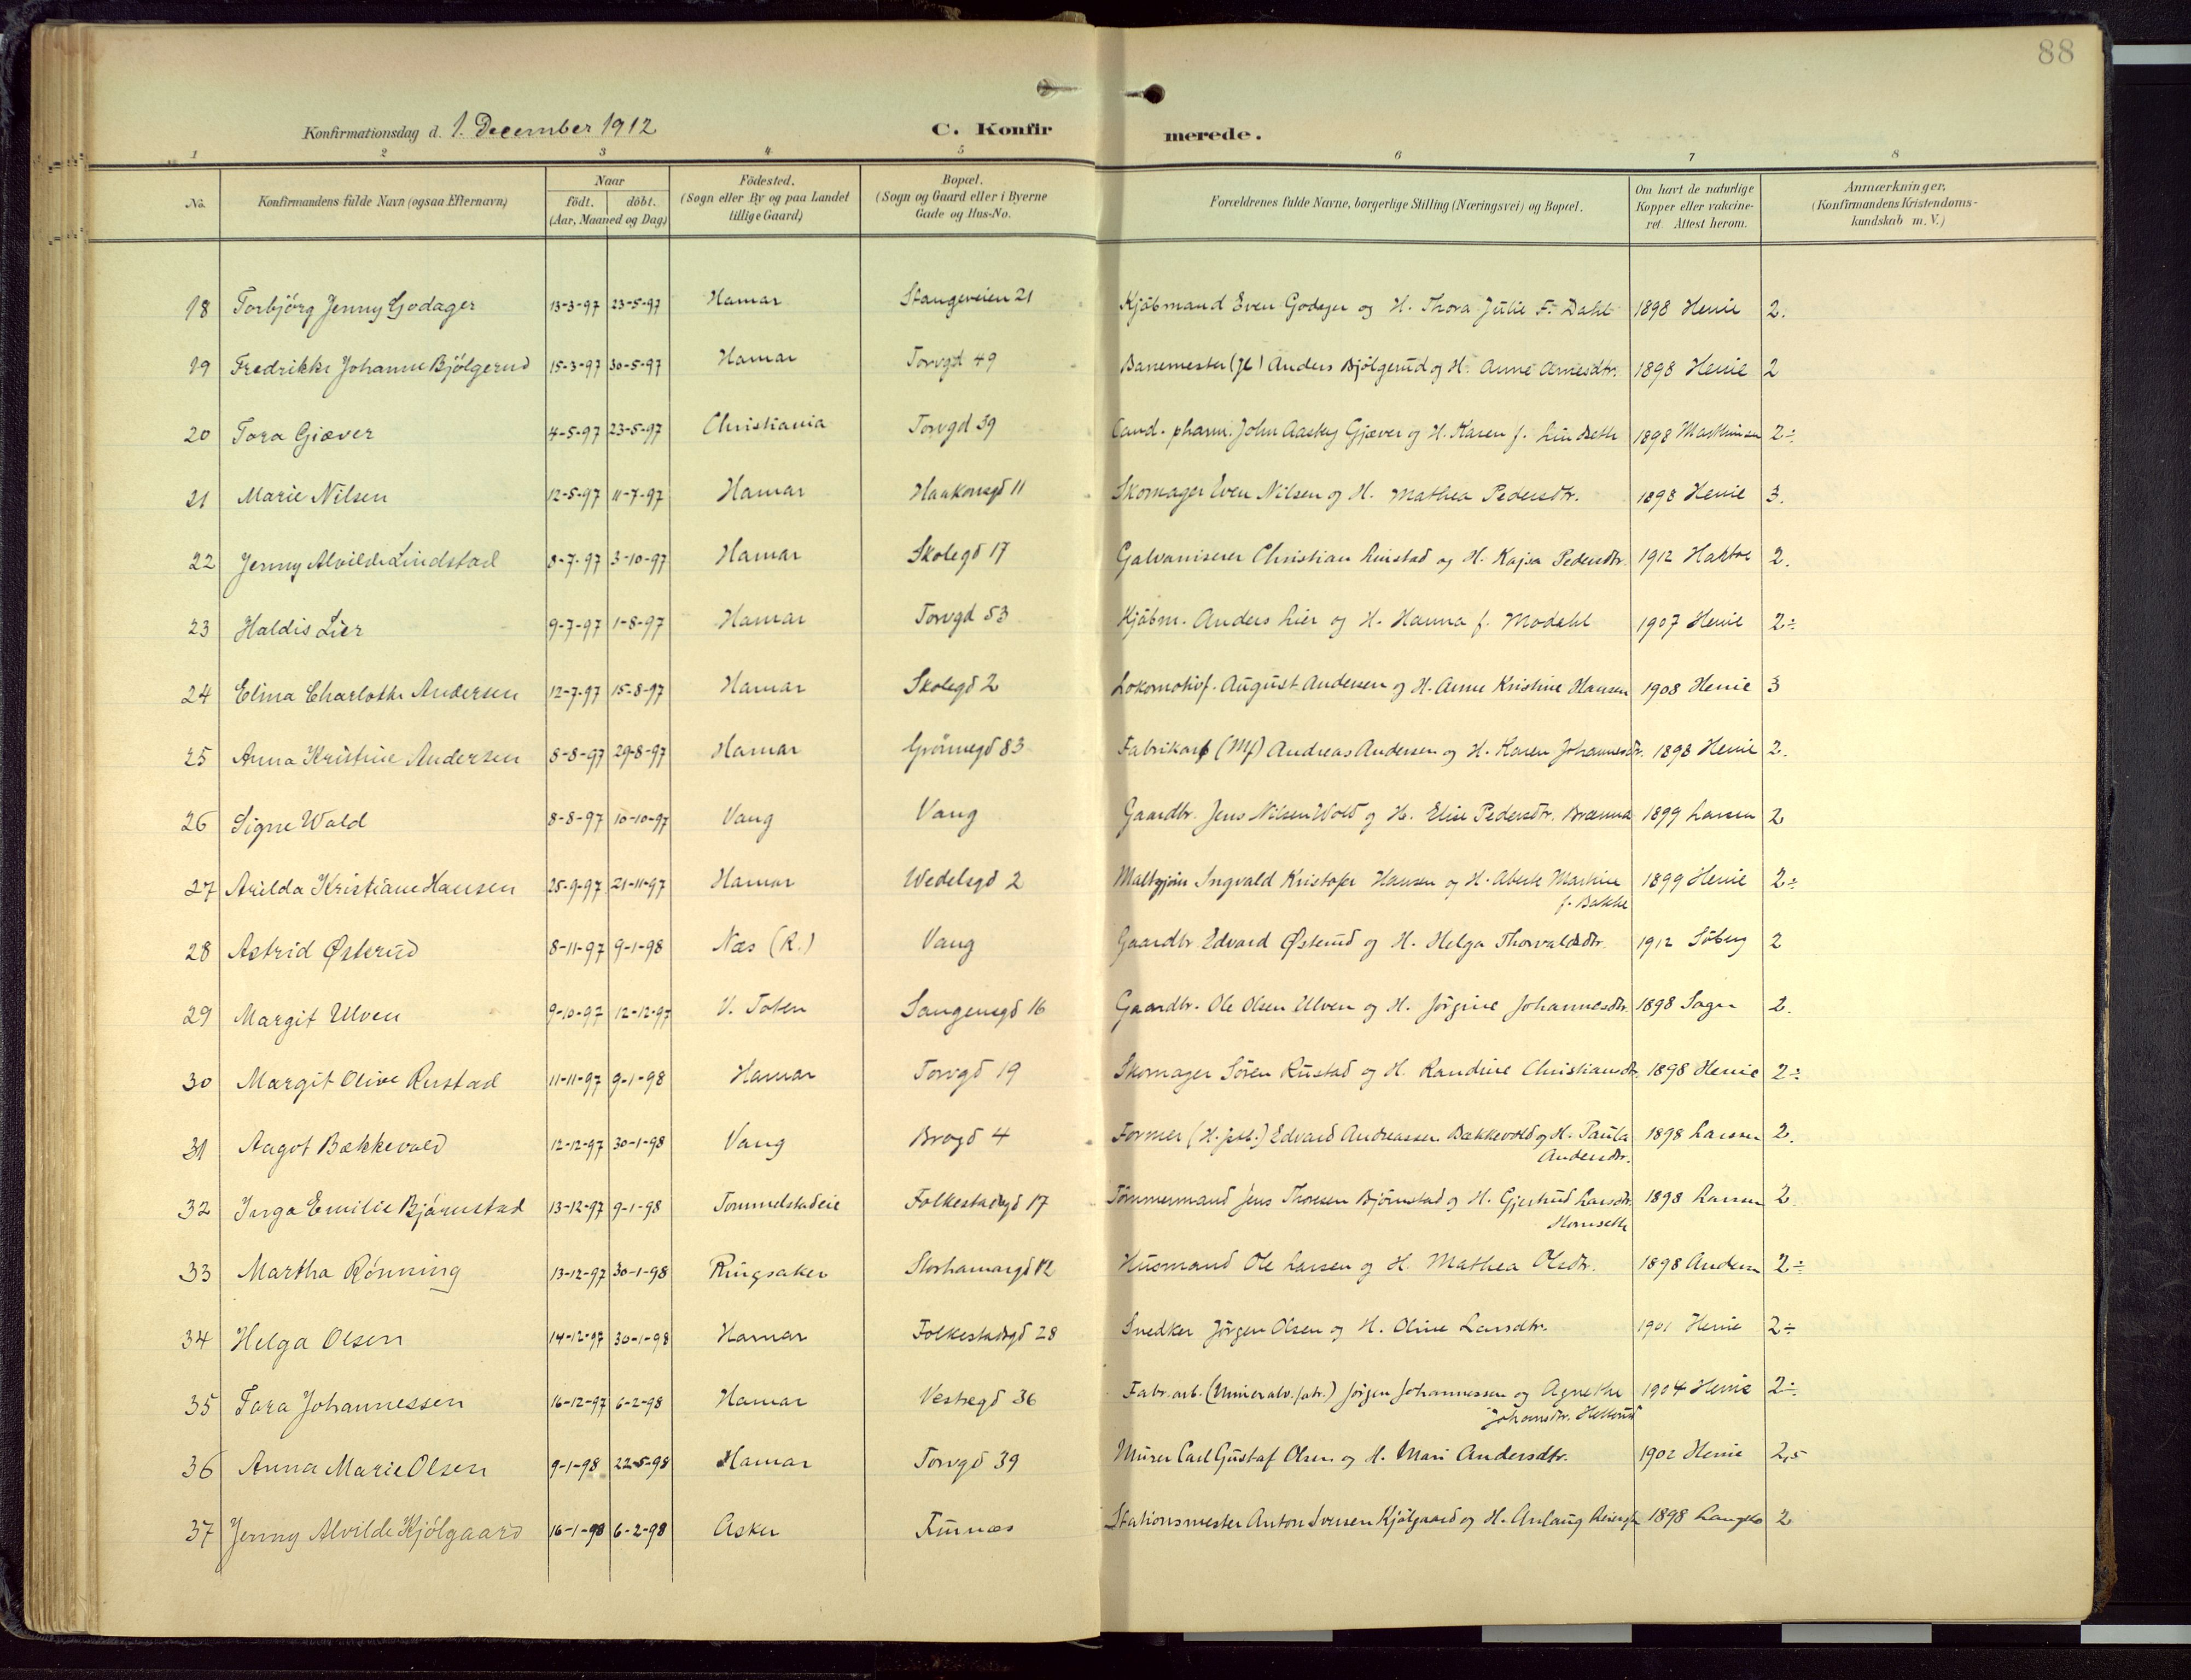 88
Konfirmationsdag d. 1. December 1912 C. Konfir merede.
1 2 3 4 5 6 7 8
No. Konfirmandens fulde Navn (ogsaa Efternavn) Naar födt. döbt. (Aar, Maaned og Dag) Födested. (Sogn eller By og paa Landet tillige Gaard) Bopæl. (Sogn og Gaard eller i Byerne Gade og Hus-No. Forældrenes fulde Navne, borgerlige Stilling (Næringsvei) og Bopæl. Om havt de naturlige Kopper eller vakcineret. Attest herom. Anmærkninger. (Konfirmandens Kristendomskundskab m. V.)
18 Torbjörg Jenny Godager 13-3-97 23-5-97 Hamar Stangeveien 21 Kjöbmand Even Godager og H. Thora Julie F. Dahl 1898 Henie 2.
19 Fredrikke Johanne Bjölgerud 15-3-97 30-5-97 Hamar Torvgd 49 Banemester Anders Bjölgerud og H. Anne Arnesdtr. 1898 Henie 2
20 Tora Giæver 4-5-97 23-5-97 Christiania Torvgd 39 Cand. pharm. John Gjæver og H. Karen f. Lindseth 1898 2÷
21 Marie Nilsen 12-5-97 11-7-97 Hamar Haakonsgd 11 Skomager Even Nilsen og H. Mathea Pedersdtr. 1898 Henie 3.
22 Jenny Alvilde Lindstad 8-7-97 3-10-97 Hamar Skolegd 17 Galvaniserer Christian Linstad og H. Kajsa Pedersdtr. 1912 2.
23 Haldis Lier 9-7-97 1-8-97 Hamar Torvgd 53 Kjöbm. Anders Lier og H. Hanna f. Modahl 1907 Henie 2÷
24 Elina Charlotte Andersen 12-7-97 15-8-97 Hamar Skolegd 2 Lokomotivf. August Andersen og H. Anne Kristine Hansen 1908 Henie 3
25 Anna Kristine Andersen 8-8-97 29-8-97 Hamar Grönnegd 83 Fabrikarb (Mf) Andreas Andersen og H. Karen Johannesdtr. 1898 Henie 2.
26 Signe Wold 8-8-97 10-10-97 Vang Vang Gaardbr. Jens Nilsen Wold og H. Elise Pedersdtr. Brænna 1899 Larsen 2
27 Arilda Kristiane Hansen 25-9-97 21-11-97 Hamar Wedelsgd 2 Ingvald Kristofer Hansen og H. 1899 Henie 2÷
f. Bakke
28 Astrid Østerud 8-11-97 9-1-98 Næs (R.) Vang Gaardbr Edvard Østerud og H. Helga Thorvaldsdtr. 1912 Söberg 2
29 Margit Ulven 9-10-97 12-12-97 V. Toten Sangensgd 16 Gaardbr. Ole Olsen Ulven og H. Jörgine Johannesdtr. 1898 2.
30 Margit Olive Rustad 11-11-97 9-1-98 Hamar Torvgd 19 Skomager Sören Rustad og H. Randine Christiansdtr. 1898 Henie 2÷
31 Aagot Bækkevold 12-12-97 30-1-98 Vang Brogd 4 Former Edvard Andreassen Bækkevold og H. Paula 1898 Larsen 2.
Andersdtr.
32 Inga Emilie Björnstad 13-12-97 9-1-98 Tommelstadeie Folkestadsgd 17 Tömmermand Jens Thoresen Björnstad og H. Gjertrud Larsdtr. 1898 Larsen 2.
Hornseth
33 Martha Rønning 13-12-97 30-1-98 Ringsaker Storhamargd 12 Husmand Ole Larsen og H. Mathea Olsdtr. 1898 Andersen 2÷
34 Helga Olsen 14-12-97 30-1-98 Hamar Folkestadsgd 28 Snedker Jörgen Olsen og H. Oline Larsdtr. 1901 Henie 2÷
35 Tora Johannessen 16-12-97 6-2-98 Hamar Vestregd 36 Fabr. arb. (Mineralv.fabr.) Jörgen Johannessen og Agnethe 1904 Henie 2÷
Johansdtr. Hellerud
36 Anna Marie Olsen 9-1-98 22-5-98 Hamar Torvgd 39 Murer Carl Gustaf Olsen og H. Mari Andersdtr. 1902 Henie 2,5
37 Jenny Alvilde Kjölgaard 16-1-98 6-2-98 Asker Furnæs Stationsmester Anton Iversen Kjölgaard og H. Anlaug 1898 2